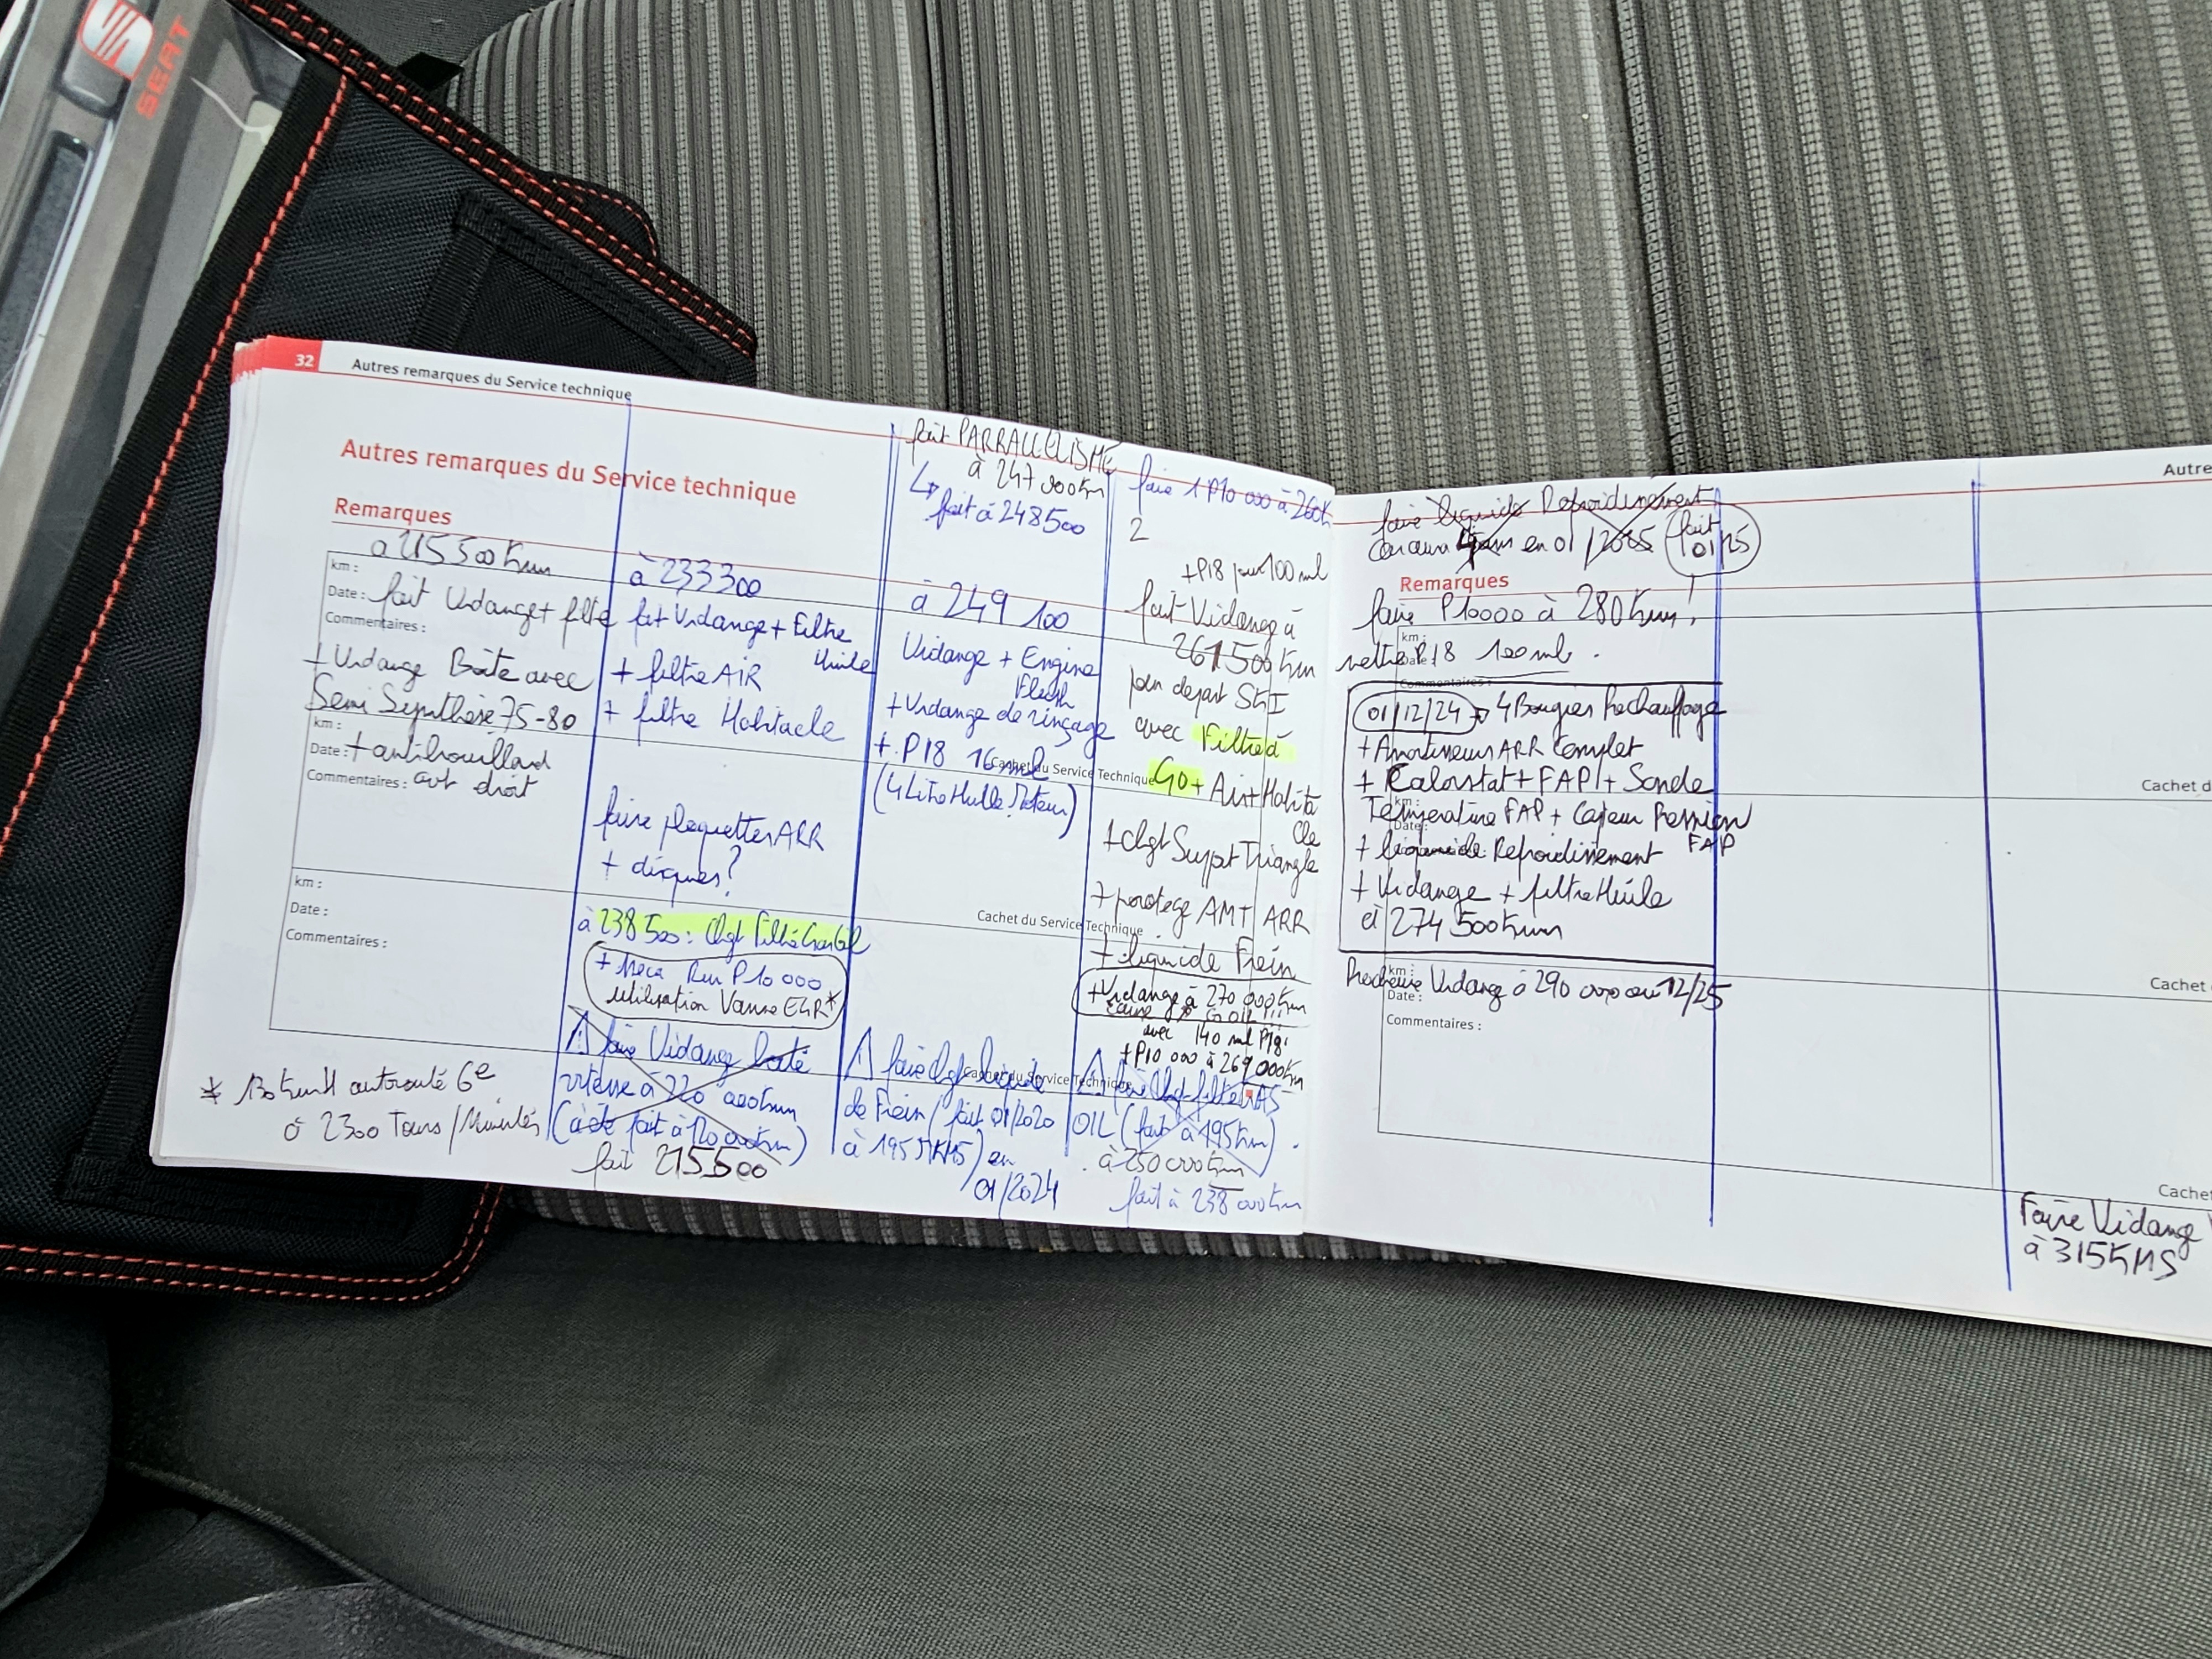 SEAT
32
Autres remarques du Service technique
Autres remarques du Service technique
Remarques
à 215 500 Km
km :
Date : fait Vidange + filtre
Commentaires :
+ Vidange Boite avec
Semi Synthèse 75-80
km :
Date : + antibrouillard
Commentaires : avt droit
km :
Date :
Commentaires :
* 130 km/H autoroute 6e
à 2300 Tours / Minutes
à 233300
fait Vidange + Filtre
Huile
+ filtre AIR
+ filtre Habitacle
faire plaquettes ARR
+ disques ?
à 238 500 : Chgt Filtre Gasoil
+ Meca Run P10 000
utilisation Vanne EGR*
⚠ faire Vidange boite
vitesse à 220 000 km
(a été fait à 120 000 km)
fait 215500
fait PARRALLELISME
à 247 000 km
↳ fait à 248500
à 249 100
Vidange + Engine
Flush
+ Vidange de rinçage
+ P18
Cachet du Service Technique
(4 Litre Huile Moteur)
Cachet du Service Technique
⚠ faire Chgt liquide
Cachet du Service Technique
de Frein (fait 01/2020
à 195 KMS) en
01/2024
faire 1 P10 000 à 260K
2
+ P18 pour 100 ml
fait Vidange à
261500 Km
avec Filtre à
GO + Air + Habita
cle
+ chgt Suppt Triangle
+ protège AMT ARR
+ liquide Frein
+ Vidange à 270 000 Km
avec 140 ml P18
+ P10 000 à 269 000 Km
⚠ faire Chgt filtre GAS
OIL (fait à 195 Km).
à 250 000 Km
fait à 238 000 Km
faire liquide Refroidissement
en 01/2025 fait
01/25
Remarques
faire P10000 à 280 Km !
km :
mettre P18 100 ml.
Commentaires :
01/12/24 → 4 Bougies Rechauffage
+ Amortisseurs ARR Complet
+ Calorstat + FAP + Sonde
km :
Température FAP + Capteur Pression
Date :
FAP
+ liquide Refroidissement
+ Vidange + filtre Huile
à 274 500 Km
km :
Prochaine Vidange à 290 000 ou 12/25
Date :
Commentaires :
Autre
Cachet d
Cachet
Cachet
Faire Vidange
à 315 KMS